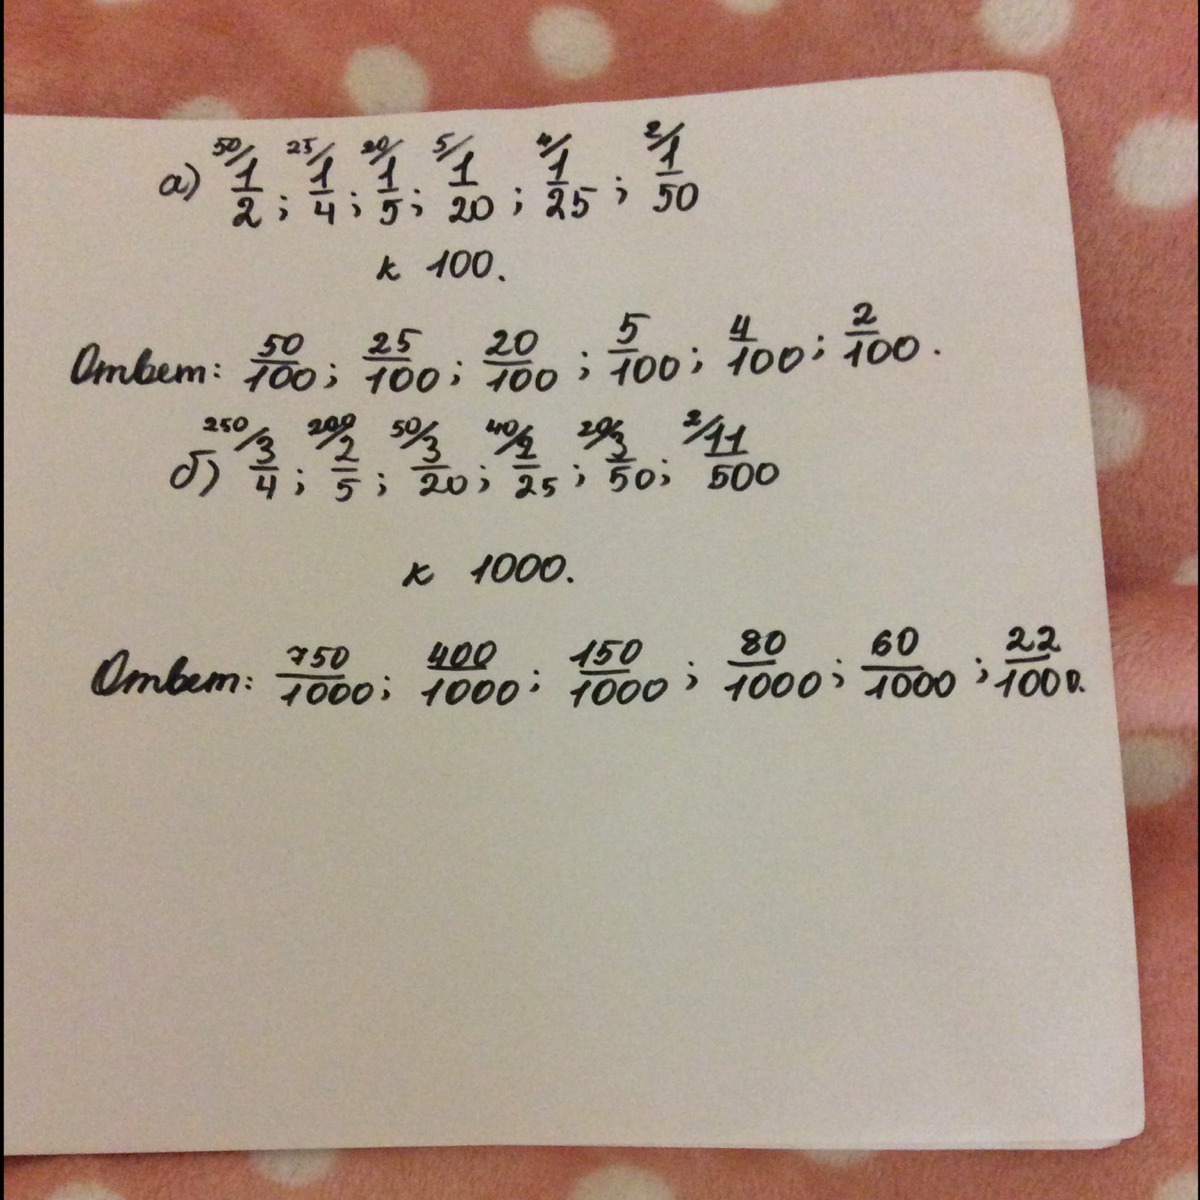 а) 50/ 1/2 ; 25/ 1/4 ; 20/ 1/5 ; 5/ 1/20 ; 4/ 1/25 ; 2/ 1/50
к 100.
Ответ: 50/100 ; 25/100 ; 20/100 ; 5/100 ; 4/100 ; 2/100 .
б) 250/ 3/4 ; 200/ 2/5 ; 50/ 3/20 ; 40/ 2/25 ; 20/ 3/50 ; 2/ 11/500
к 1000.
Ответ: 750/1000 ; 400/1000 ; 150/1000 ; 80/1000 ; 60/1000 ; 22/1000.